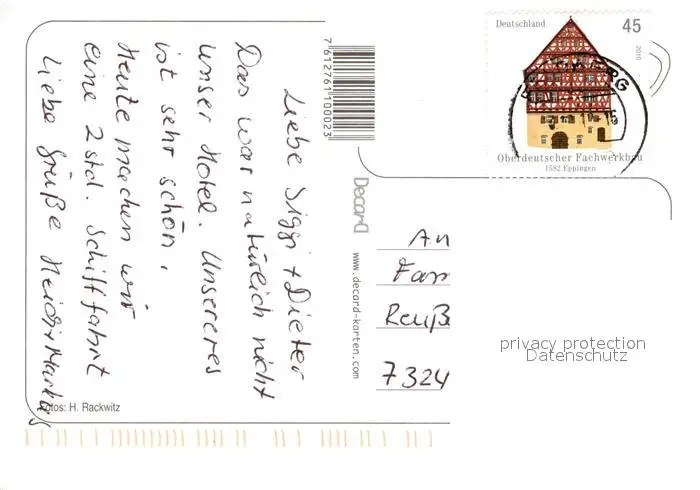 Liebe Siggi + Dieter
Das war natürlich nicht
unser Hotel. Unseres
ist sehr schön.
Heute machen wir
eine 2 std. Schifffahrt
Liebe Grüße Heidi + Markus
Fotos: H. Rackwitz
7612761100023
Decard
www.decard-karten.com
Deutschland
45
2010
Oberdeutscher Fachwerkbau
1582 Eppingen
An
Fam
Reuß
7324
privacy protection
Datenschutz